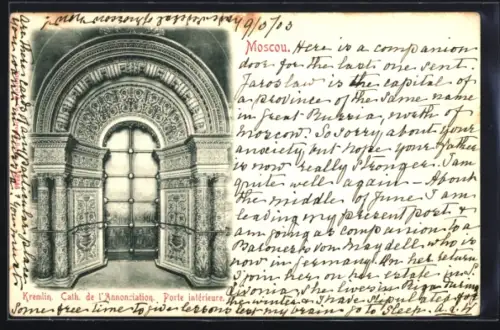 19/5/03
Moscou.
Here is a companion
door for the last one sent.
Jaroslaw is the capital of
a province of the same name
in Great Russia, north of
Moscow. So sorry about your
anxiety but hope your father
is now really stronger. I am
quite well again — About
the middle of June I am
leaving my present post &
am going as companion to a
Baroness von Maydell who is
now in Germany. On her return
I join her on her estate in
Livonia. She lives in Riga during
the winter & I have stipulated for
some free time to give lessons
my brain go to sleep. A.L.
Kremlin. Cath. de l'Annonciation. Porte intérieure.
Are there any of any particular places
you want